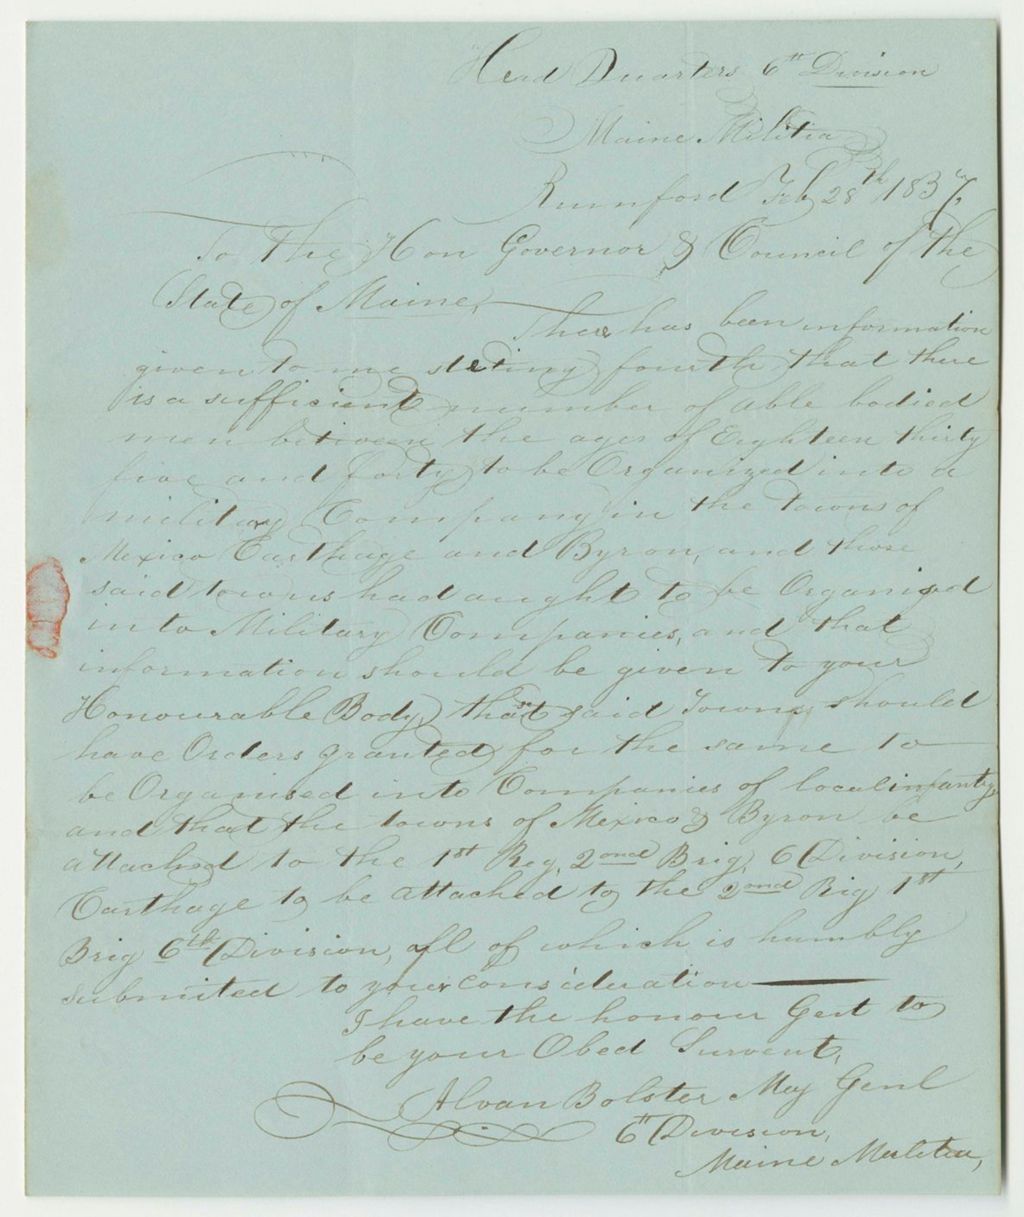 Head Quarters 6th Division
Maine Militia
Rumford Feb 28th 1837,
To The Hon Governor & Council of the
State of Maine,
There has been information
given to me steting fourth that there
is a sufficient number of able bodied
men between the ages of Eighteen thirty
five and forty to be Organized into a
military Company in the towns of
Mexico Carthage and Byron, and those
said towns had aught to be Organised
into Military Companies, and that
information should be given to your
Honourable Body, that said Towns should
have Orders granted for the same to
be Organised into Companies of local infantry
and that the towns of Mexico & Byron be
attached to the 1st Reg, 2ond Brig, 6 Division,
Carthage to be attached to the 2ond Rig 1st
Brig 6th Division, all of which is humbly
submited to your consideration
I have the honour Gent to
be your Obed Survent,
Alvan Bolster Maj Genl
6th Division,
Maine Militia,